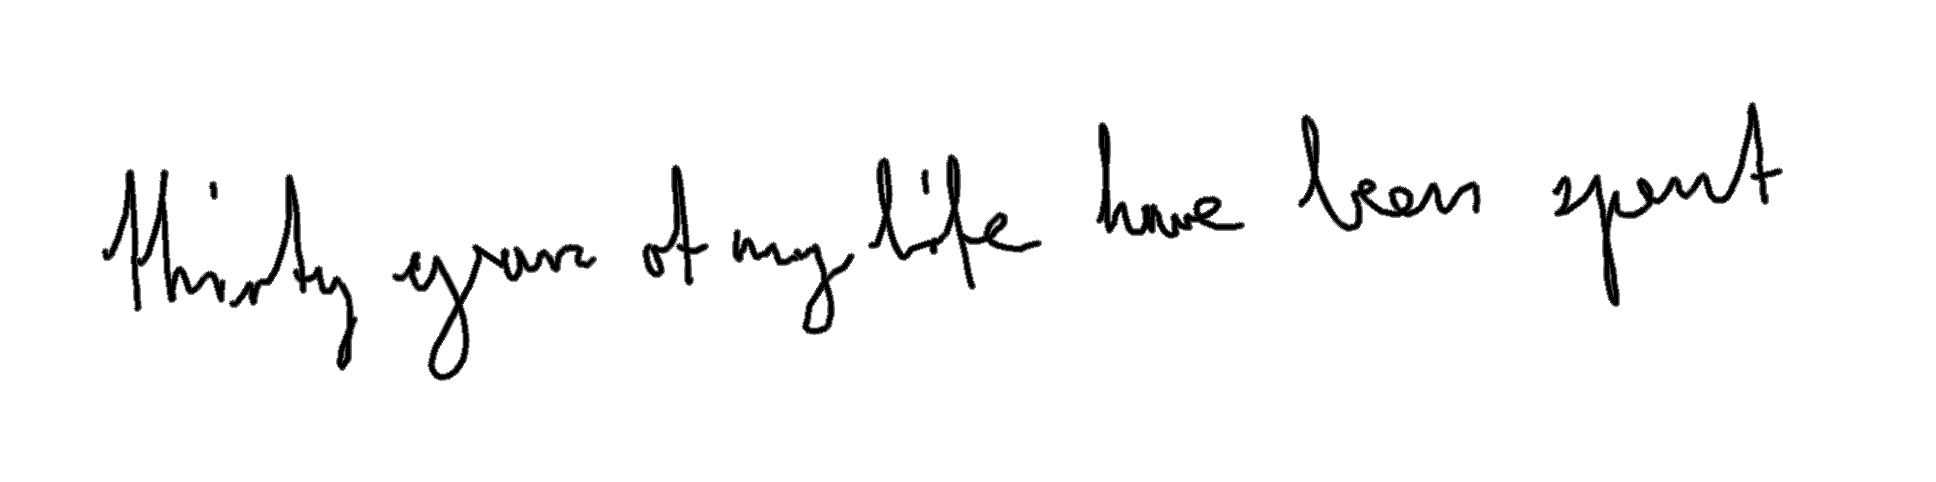 Thirty years of my life have been spent